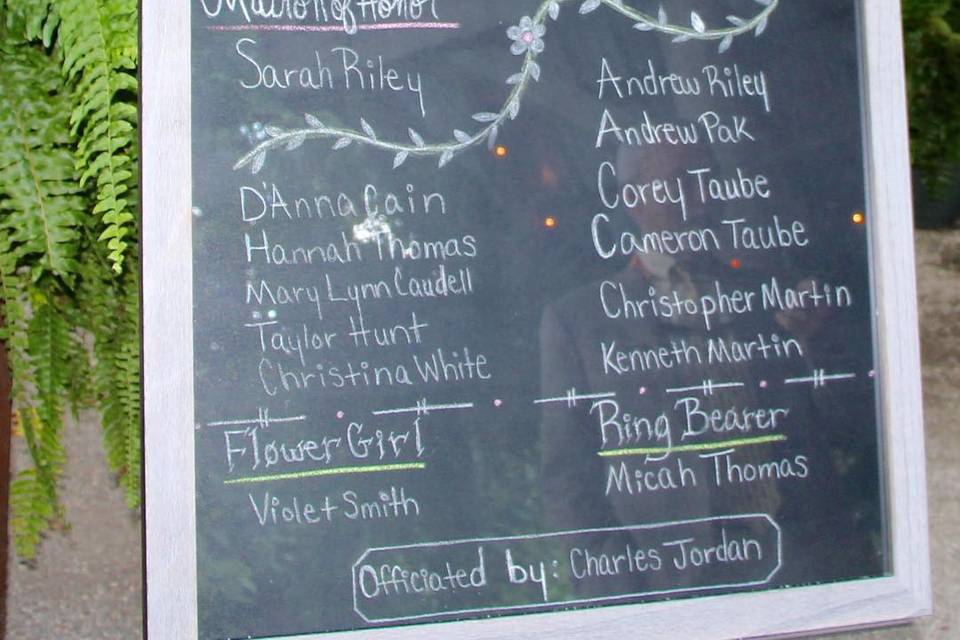 Matron of Honor
Sarah Riley
D'Anna Cain
Hannah Thomas
Mary Lynn Caudell
Taylor Hunt
Christina White
Flower Girl
Violet Smith
Andrew Riley
Andrew Pak
Corey Taube
Cameron Taube
Christopher Martin
Kenneth Martin
Ring Bearer
Micah Thomas
Officiated by: Charles Jordan